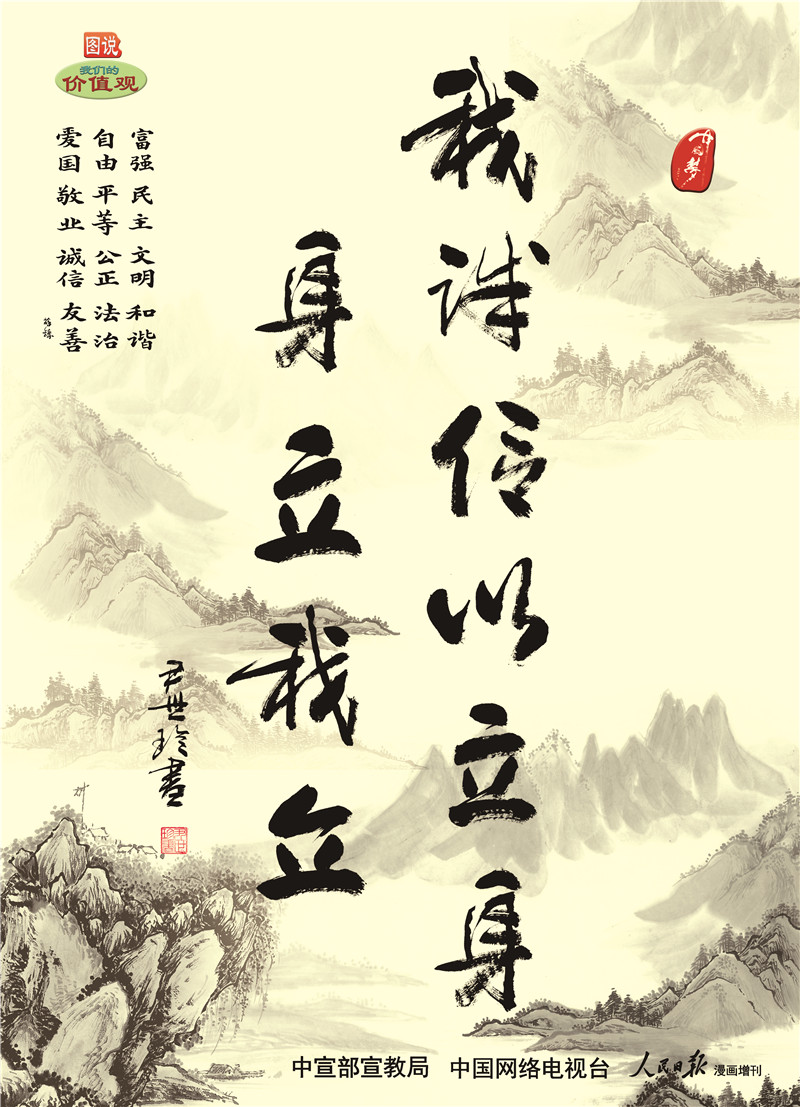 图说
我们的
价值观
富强 民主 文明 和谐
自由 平等 公正 法治
爱国 敬业 诚信 友善
中国梦
我诚信以立身
身立我立
尹世珍書
中宣部宣教局 中国网络电视台 人民日报 漫画增刊